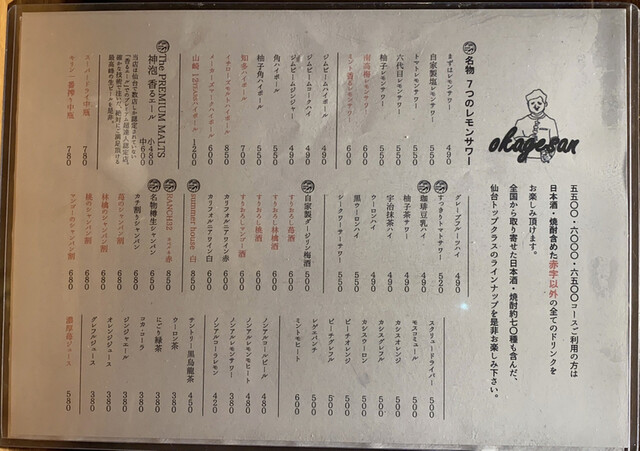 okagesan
五五〇〇・六〇〇〇・六五〇〇コースご利用の方は
日本酒・焼酎含めた赤字以外の全てのドリンクを
お楽しみ頂けます。
全国から取り寄せた日本酒・焼酎約七〇種も含んだ、
仙台トップクラスのラインナップを是非お楽しみ下さい。
名物 7つのレモンサワー
まずはレモンサワー 490
自家製塩レモンサワー 550
トマトレモンサワー 550
六代目レモンサワー 550
柚子レモンサワー 550
南高梅レモンサワー 600
ミント香るレモンサワー 600
ジムビームハイボール 490
ジムビームコークハイ 490
ジムビームジンジャー 490
角ハイボール 550
柚子角ハイボール 550
知多ハイボール 700
イチローズモルトハイボール 850
メーカーズマークハイボール 600
山崎 1923ハイボール 1200
The PREMIUM MALTS
神泡 香るエール 小480
中600
スーパードライ中瓶 780
キリン一番搾り中瓶 780
グレープフルーツハイ 490
すっきりトマトサワー 520
珈琲豆乳ハイ 490
柚子茶サワー 490
宇治抹茶ハイ 490
ウーロンハイ 490
黒ウーロンハイ 550
シークワーサーサワー 550
自家製ダージリン梅酒 500
すりおろし苺酒 650
すりおろし林檎酒 650
すりおろし桃酒 650
すりおろしマンゴー酒 650
カリフォルニアワイン赤 600
カリフォルニアワイン白 600
summer house 白 850
RANCH32 赤 850
名物樽生シャンパン 650
カチ割りシャンパン 680
苺のシャンパン割 680
林檎のシャンパン割 680
桃のシャンパン割 680
マンゴーのシャンパン割 680
スクリュードライバー 500
モスコミュール 500
カシスオレンジ 500
カシスグレフル 500
カシスウーロン 500
ピーチオレンジ 500
ピーチグレフル 500
レゲエパンチ 500
ミントモヒート 600
ノンアルコールビール 480
ノンアルレモンヒート 480
ノンアルレモンサワー 480
ノンアルコーラレモン 420
サントリー黒烏龍茶 450
ウーロン茶 380
にごり緑茶 380
コカ・コーラ 380
ジンジャエール 380
オレンジジュース 380
グレフルジュース 380
濃厚苺ジュース 580